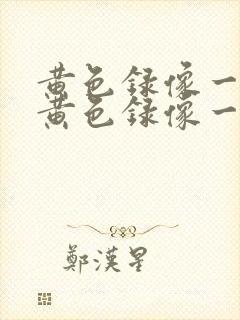 黄色録像一
黄色録像一
鄭漢星